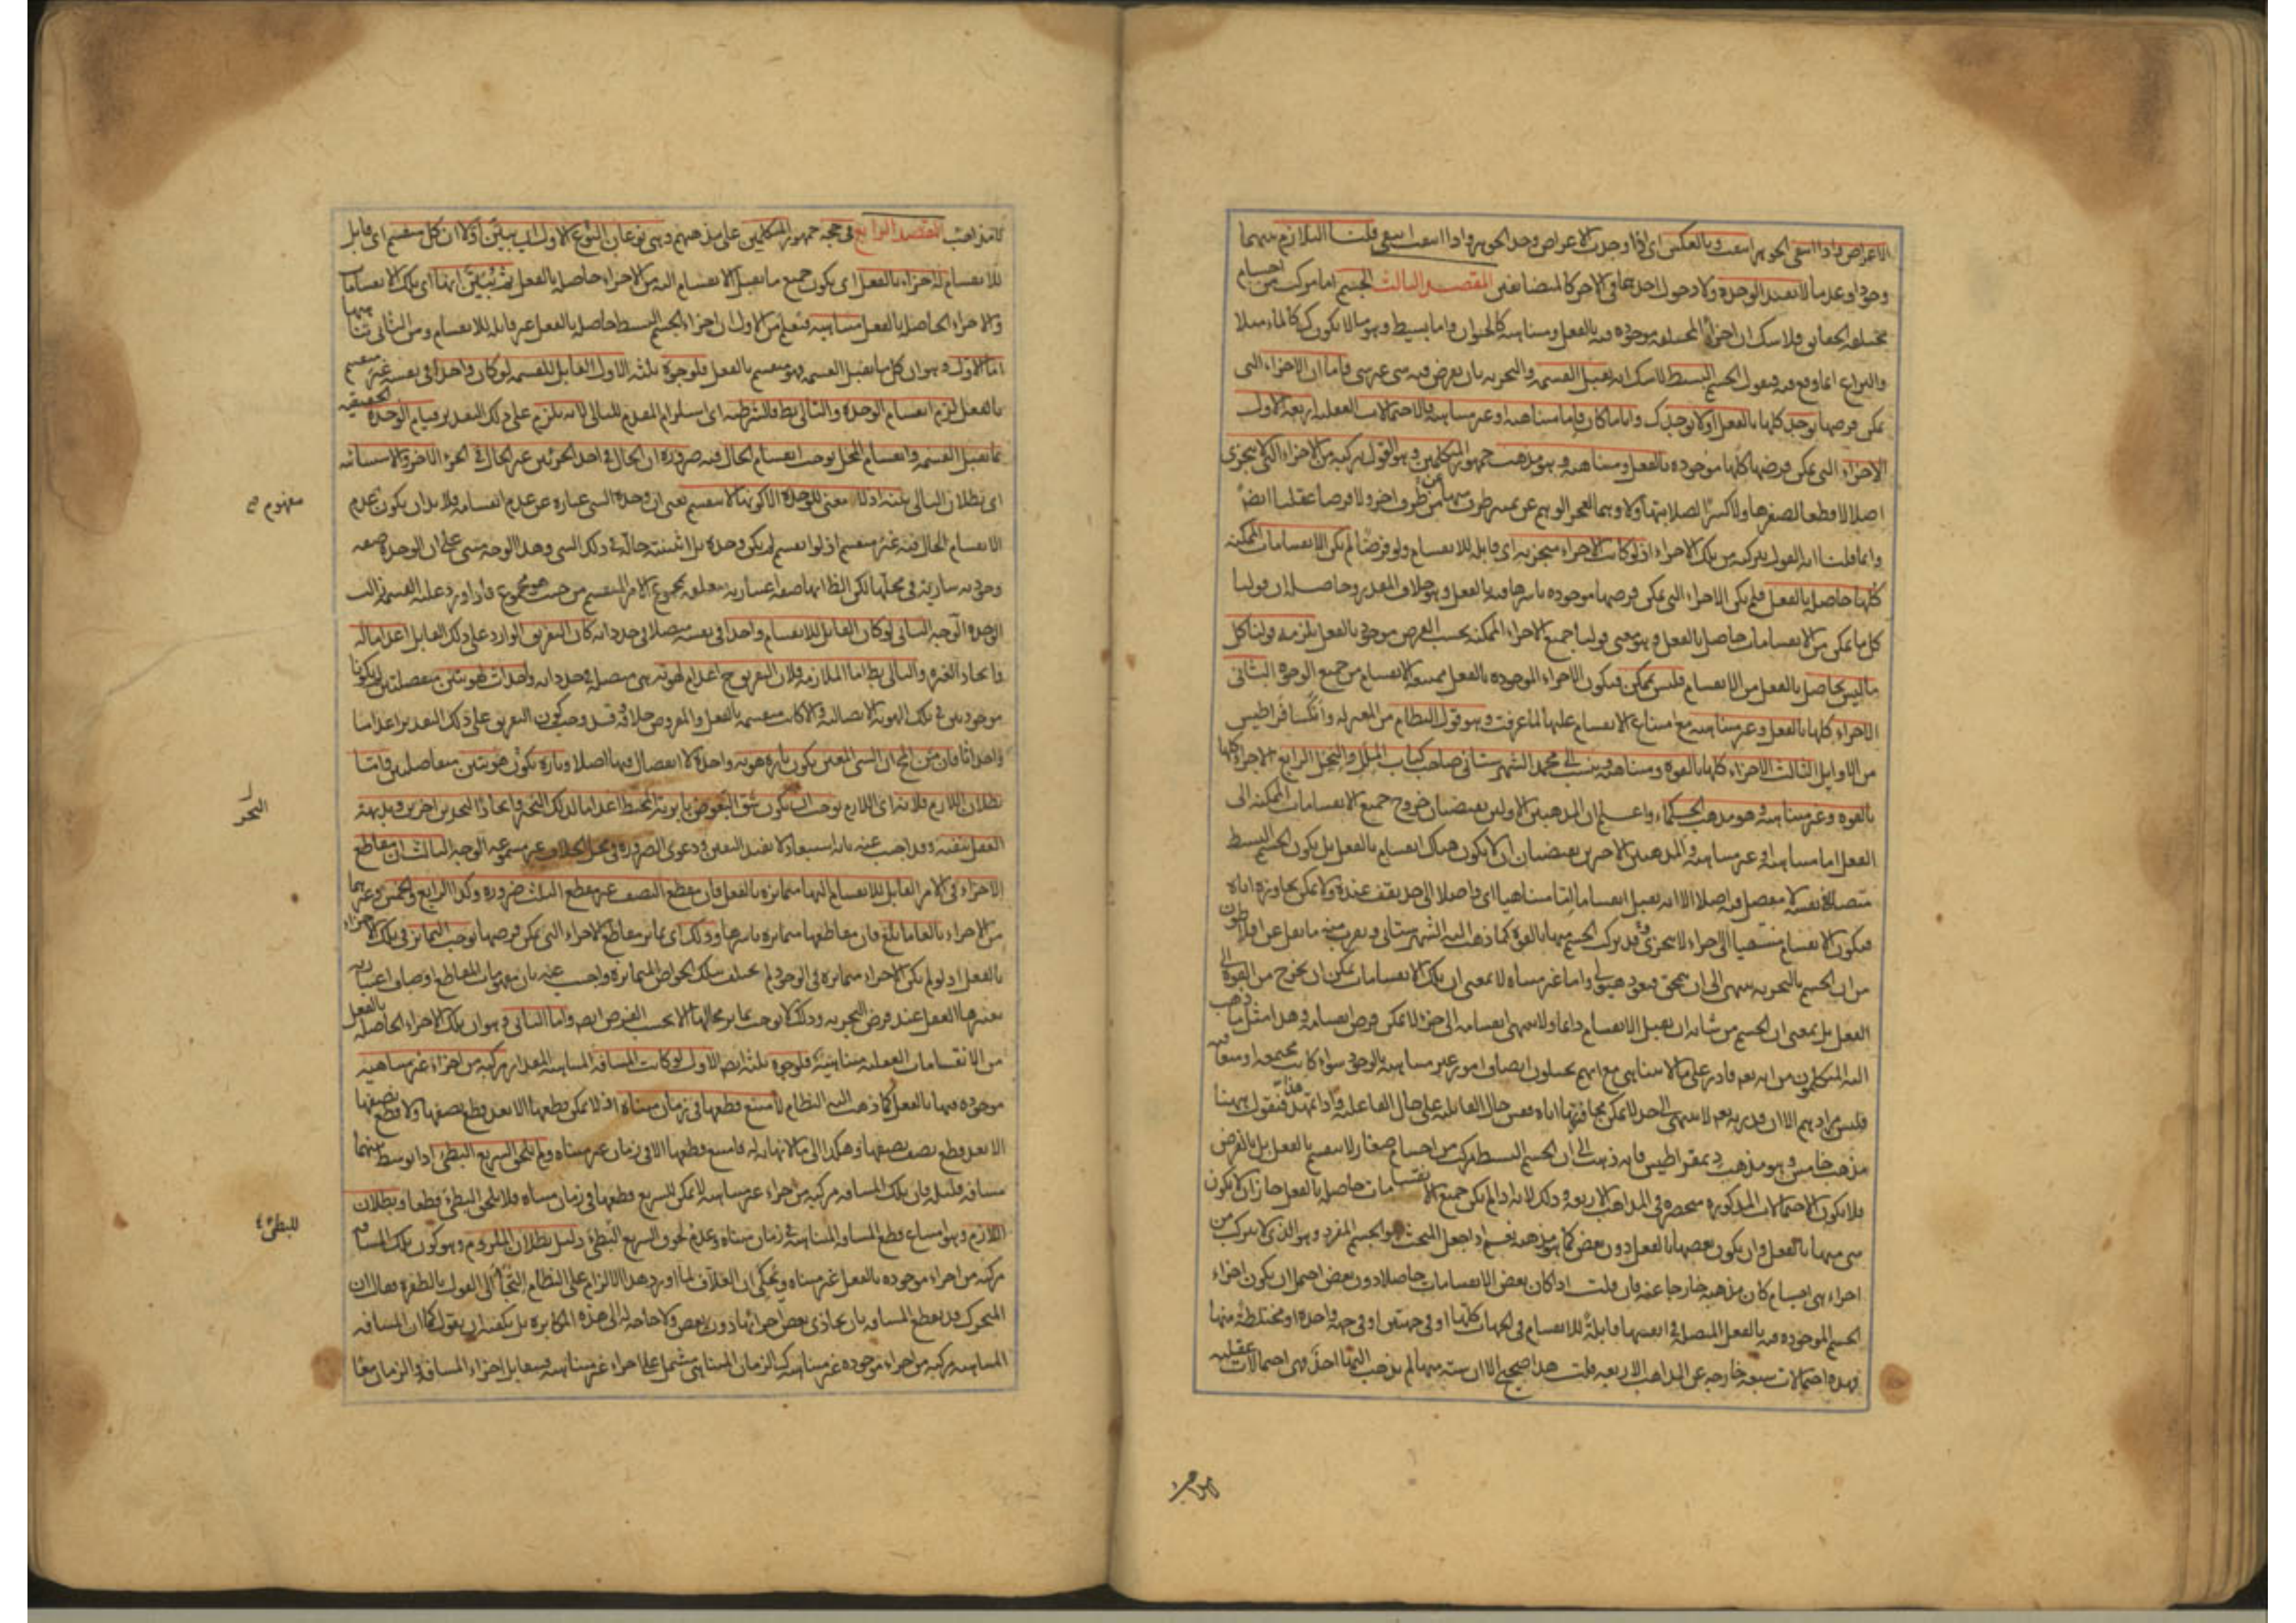 الاعراض واذا انتفى الجوهر انتفت وبالعكس اى اذا وجدت الاعراض وجد الجوهر واذا انتفت انتفى قلنا التلازم بينهما
وجودا وعدما لا يفيد الوحدة ولا دخول احدهما فى الاخر كالمتضايفين المقصد الثالث الجسم اما مركب من اجسام
مختلفة الحقائق فلا شك ان اجزاءه المختلفة موجودة فيه بالفعل ومتناهية كالحيوان واما بسيط وهو ما لا يكون كذلك كالماء مثلا
والنزاع انما وقع فيه فنقول الجسم البسيط لا شك انه يقبل القسمة والتجزية بان يفرض فيه شى غير شى فاما ان الاجزاء التى
يمكن فرضها توجد كلها بالفعل او لا توجد كذلك واياما كان فاما متناهية او غير متناهية فالاحتمالات العقلية اربعة الاول
الاجزاء التى يمكن فرضها كلها موجودة بالفعل ومتناهية وهو مذهب جمهور المتكلمين وهو القول بتركبه من الاجزاء التى لا يتجزى
اصلا لا قطعا لصغرها ولا كسرا لصلابتها ولا وهما لعجز الوهم عن تمييز طرف منها عن طرف اخر ولا فرضا عقليا ايضا
وانما قلنا انه القول بتركبه من تلك الاجزاء اذ لو كانت الاجزاء متجزية اى قابلة للانقسام ولو فرضا لم تكن الانقسامات الممكنة
كلها حاصلة بالفعل فلم يكن الاجزاء التى يمكن فرضها موجودة باسرها فيه بالفعل وهو خلاف المقدر وحاصله ان قولنا
كل ما يمكن من الانقسامات حاصل بالفعل وهو معنى قولنا جميع الاجزاء الممكنة بحسب الفرض موجود بالفعل يلزمه قولنا كل
ما ليس بحاصل بالفعل من الانقسام فليس بممكن فيكون الاجزاء الموجودة بالفعل ممتنعة الانقسام من جميع الوجوه الثانى
الاجزاء كلها بالفعل وغير متناهية مع امتناع الانقسام عليها لما عرفت وهو قول النظام من المعتزلة وانكسافراطيس
من الاوايل الثالث الاجزاء كلها بالقوة ومتناهية وينسب الى محمد الشهرستانى صاحب كتاب الملل والنحل الرابع الاجزاء كلها
بالقوة وغير متناهية وهو مذهب الحكماء واعلم ان المذهبين الاولين يقتضيان خروج جميع الانقسامات الممكنة الى
الفعل اما متناهية او غير متناهية والمذهبين الاخرين يقتضيان ان لا يكون هناك انقسام بالفعل بل يكون الجسم البسيط
متصلا فى نفسه لا مفصل فيه اصلا الا انه يقبل انقساما اما متناهيا اى واصلا الى حد يقف عنده ولا يمكن تجاوزه اياه
فيكون الانقسام منتهيا الى اجزاء لا تتجزى قد تركب الجسم منها بالقوة كما ذهب اليه الشهرستانى ويقرب منه ما نقل عن افلاطون
من ان الجسم بالتجزية ينتهى الى ان ينمحق فيعود هيولى واما غير متناه لا بمعنى ان تلك الانقسامات يمكن ان تخرج من القوة الى
الفعل بل بمعنى ان الجسم من شانه ان يقبل الانقسام دائما ولا ينتهى انقسامه الى جزء لا يمكن فرض انقسامه وهذا مثل ما ذهب
اليه المتكلمون من انه تعالى قادر على ما لا يتناهى مع انهم يحيلون اتصاف امور غير متناهية بالوجود سواء كانت مجتمعة او متعاقبة
فليس مرادهم الا ان قدرته تعالى لا تنتهى الى حد لا يمكن مجاوزتها اياه فقس حال القابلية على حال الفاعلية واذا تمهد هذا فنقول ههنا
مذهب خامس وهو مذهب ديمقراطيس فانه ذهب الى ان الجسم البسيط مركب من اجسام صغار لا تنقسم بالفعل بل بالفرض
فلا يكون الاحتمالات المذكورة منحصرة فى المذاهب الاربعة وذلك لانه اذا لم يكن جميع الانقسامات حاصلة بالفعل جاز ان لا يكون
شى منها بالفعل وان يكون بعضها بالفعل دون بعض كما هو مذهبه نعم اذا جعل المبحث هو الجسم المفرد وهو الذى لا يتركب من
اجزاء هى اجسام كان مذهبه خارجا عنه فان قلت اذا كان بعض الانقسامات حاصلا دون بعض احتمل ان يكون اجزاء
الجسم الموجودة فيه بالفعل المتصلة فى انفسها قابلة للانقسام فى الجهات كلها او فى جهتين او فى جهة واحدة او مختلطة منها
فهذه احتمالات سبعة خارجة عن المذاهب الاربعة قلت هذا صحيح الا ان ستة منها لم يذهب اليها احد فهى احتمالات عقلية
لا مذاهب المقصد الرابع فى حجة جمهور المتكلمين على مذهبهم وهى نوعان النوع الاول ان يبين اولا ان كل منقسم اى قابل
للانقسام له اجزاء بالفعل اى يكون جميع ما يقبل الانقسام اليه من الاجزاء حاصلة بالفعل ثم يبين انها اى تلك الانقسامات
والاجزاء الحاصلة بالفعل متناهية فيعلم من الاول ان اجزاء الجسم البسيط حاصلة بالفعل غير قابلة للانقسام ومن الثانى تناهيها
اما الاول وهو ان كل ما يقبل القسمة فهو منقسم بالفعل فلوجوه ثلثة الاول القابل للقسمة لو كان واحدا فى نفسه غير منقسم
بالفعل لزم انقسام الوحدة والتالى بط فالشرطية اى استلزام المقدم للتالى لانه يلزم على ذلك التقدير قيام الوحدة الحقيقية
بما يقبل القسمة وانقسام المحل يوجب انقسام الحال فيه ضرورة ان الحال فى احد الجزئين غير الحال فى الجزء الاخر والاستثنائية
اى بطلان التالى بينة اذ لا معنى للوحدة الا كونها لا تنقسم يعنى ان وحدة الشى عبارة عن عدم انقسامه فلا بد ان يكون عدم
الانقسام الحال فيه غير منقسم اذ لو انقسم لم يكن وحدة بل اثنينية حالة فى ذلك الشى وهذا الوجه مبنى على ان الوحدة صفة
وجودية سارية فى محلها لكن الظ انها صفة اعتبارية متعلقة بمجموع الامر المنقسم من حيث هو مجموع فاذا ورد عليه القسمة زالت
الوحدة الوجه الثانى لو كان القابل للانقسام واحدا فى نفسه متصلا فى حد ذاته كان التفريق الوارد على ذلك القابل اعداما له
موجودتين فى تلك الهوية الاتصالية والا كانت منقسمة بالفعل والمفروض خلافه فقد وجب كون التفريق على ذلك التقدير اعداما
واحداثا فان من المحال ان الشى المعين يكون تارة هوية واحدة لا انفصال فيها اصلا وتارة يكون هويتين متفاصلتين واما
بطلان اللازم فلانه اى اللازم يوجب ان يكون شق البعوض بابرته البحر المحيط اعداما لذلك البحر وايجادا لبحرين اخرين وبديهة
العقل تنفيه وقد اجيب عنه بانه استبعاد لا يفيد اليقين ودعوى الضرورة فى محل الخلاف غير مسموعة الوجه الثالث ان مقاطع
الاجزاء فى الامر القابل للانقسام اليها متمايزة بالفعل فان مقطع النصف غير مقطع الثلث ضرورة وكذا الرابع والخمس وغيرهما
من الاجزاء بالغا ما بلغ فان مقاطعها متمايزة باسرها وذلك اى تمايز مقاطع الاجزاء التى يمكن فرضها يوجب التمايز فى تلك الاجزاء
بالفعل اذ لو لم يكن الاجزاء متمايزة فى الوجود لم تختلف بتلك الخواص المتمايزة واجيب عنه بان مفهومات المقاطع اوصاف اعتبارية
يعتبرها العقل عند فرض التجزية وذلك لا يوجب تمايز محالها الا بحسب الفرض ايضا واما الثانى وهو ان تلك الاجزاء الحاصلة بالفعل
من الانقسامات الفعلية متناهية فلوجوه ثلثة ايضا الاول لو كانت المسافة المتناهية المقدار مركبة من اجزاء غير متناهية
موجودة فيها بالفعل كما ذهب اليه النظام لامتنع قطعها فى زمان متناه اذ لا يمكن قطعها الا بعد قطع نصفها ولا قطع نصفها
الا بعد قطع نصف نصفها وهكذا الى ما لا نهاية له فامتنع قطعها الا فى زمان غير متناه ولم يلحق السريع البطى اذا توسط بينهما
مسافة قليلة فان تلك المسافة مركبة من اجزاء غير متناهية لا يمكن للسريع قطعها فى زمان متناه فلا يلحق البطى قطعا وبطلان
اللازم وهو امتناع قطع المسافة المتناهية فى زمان متناه وعدم لحوق السريع البطى دليل بطلان الملزوم وهو كون تلك المسافة
مركبة من اجزاء موجودة بالفعل غير متناه ويحكى ان العلاف لما اورد هذا الالزام على النظام التجأ الى القول بالطفرة فقال ان
المتحرك قد يقطع المسافة بان يحاذى بعض اجزائها دون بعض ولا حاجة له الى هذه المكابرة بل يكفيه ان يقول كما ان المسافة
المتناهية مركبة من اجزاء موجودة غير متناهية كذلك الزمان المتناهى مشتمل على اجزاء غير متناهية فيتقابل اجزاء المسافة والزمان معا
مفهوم
البحر
للبطى